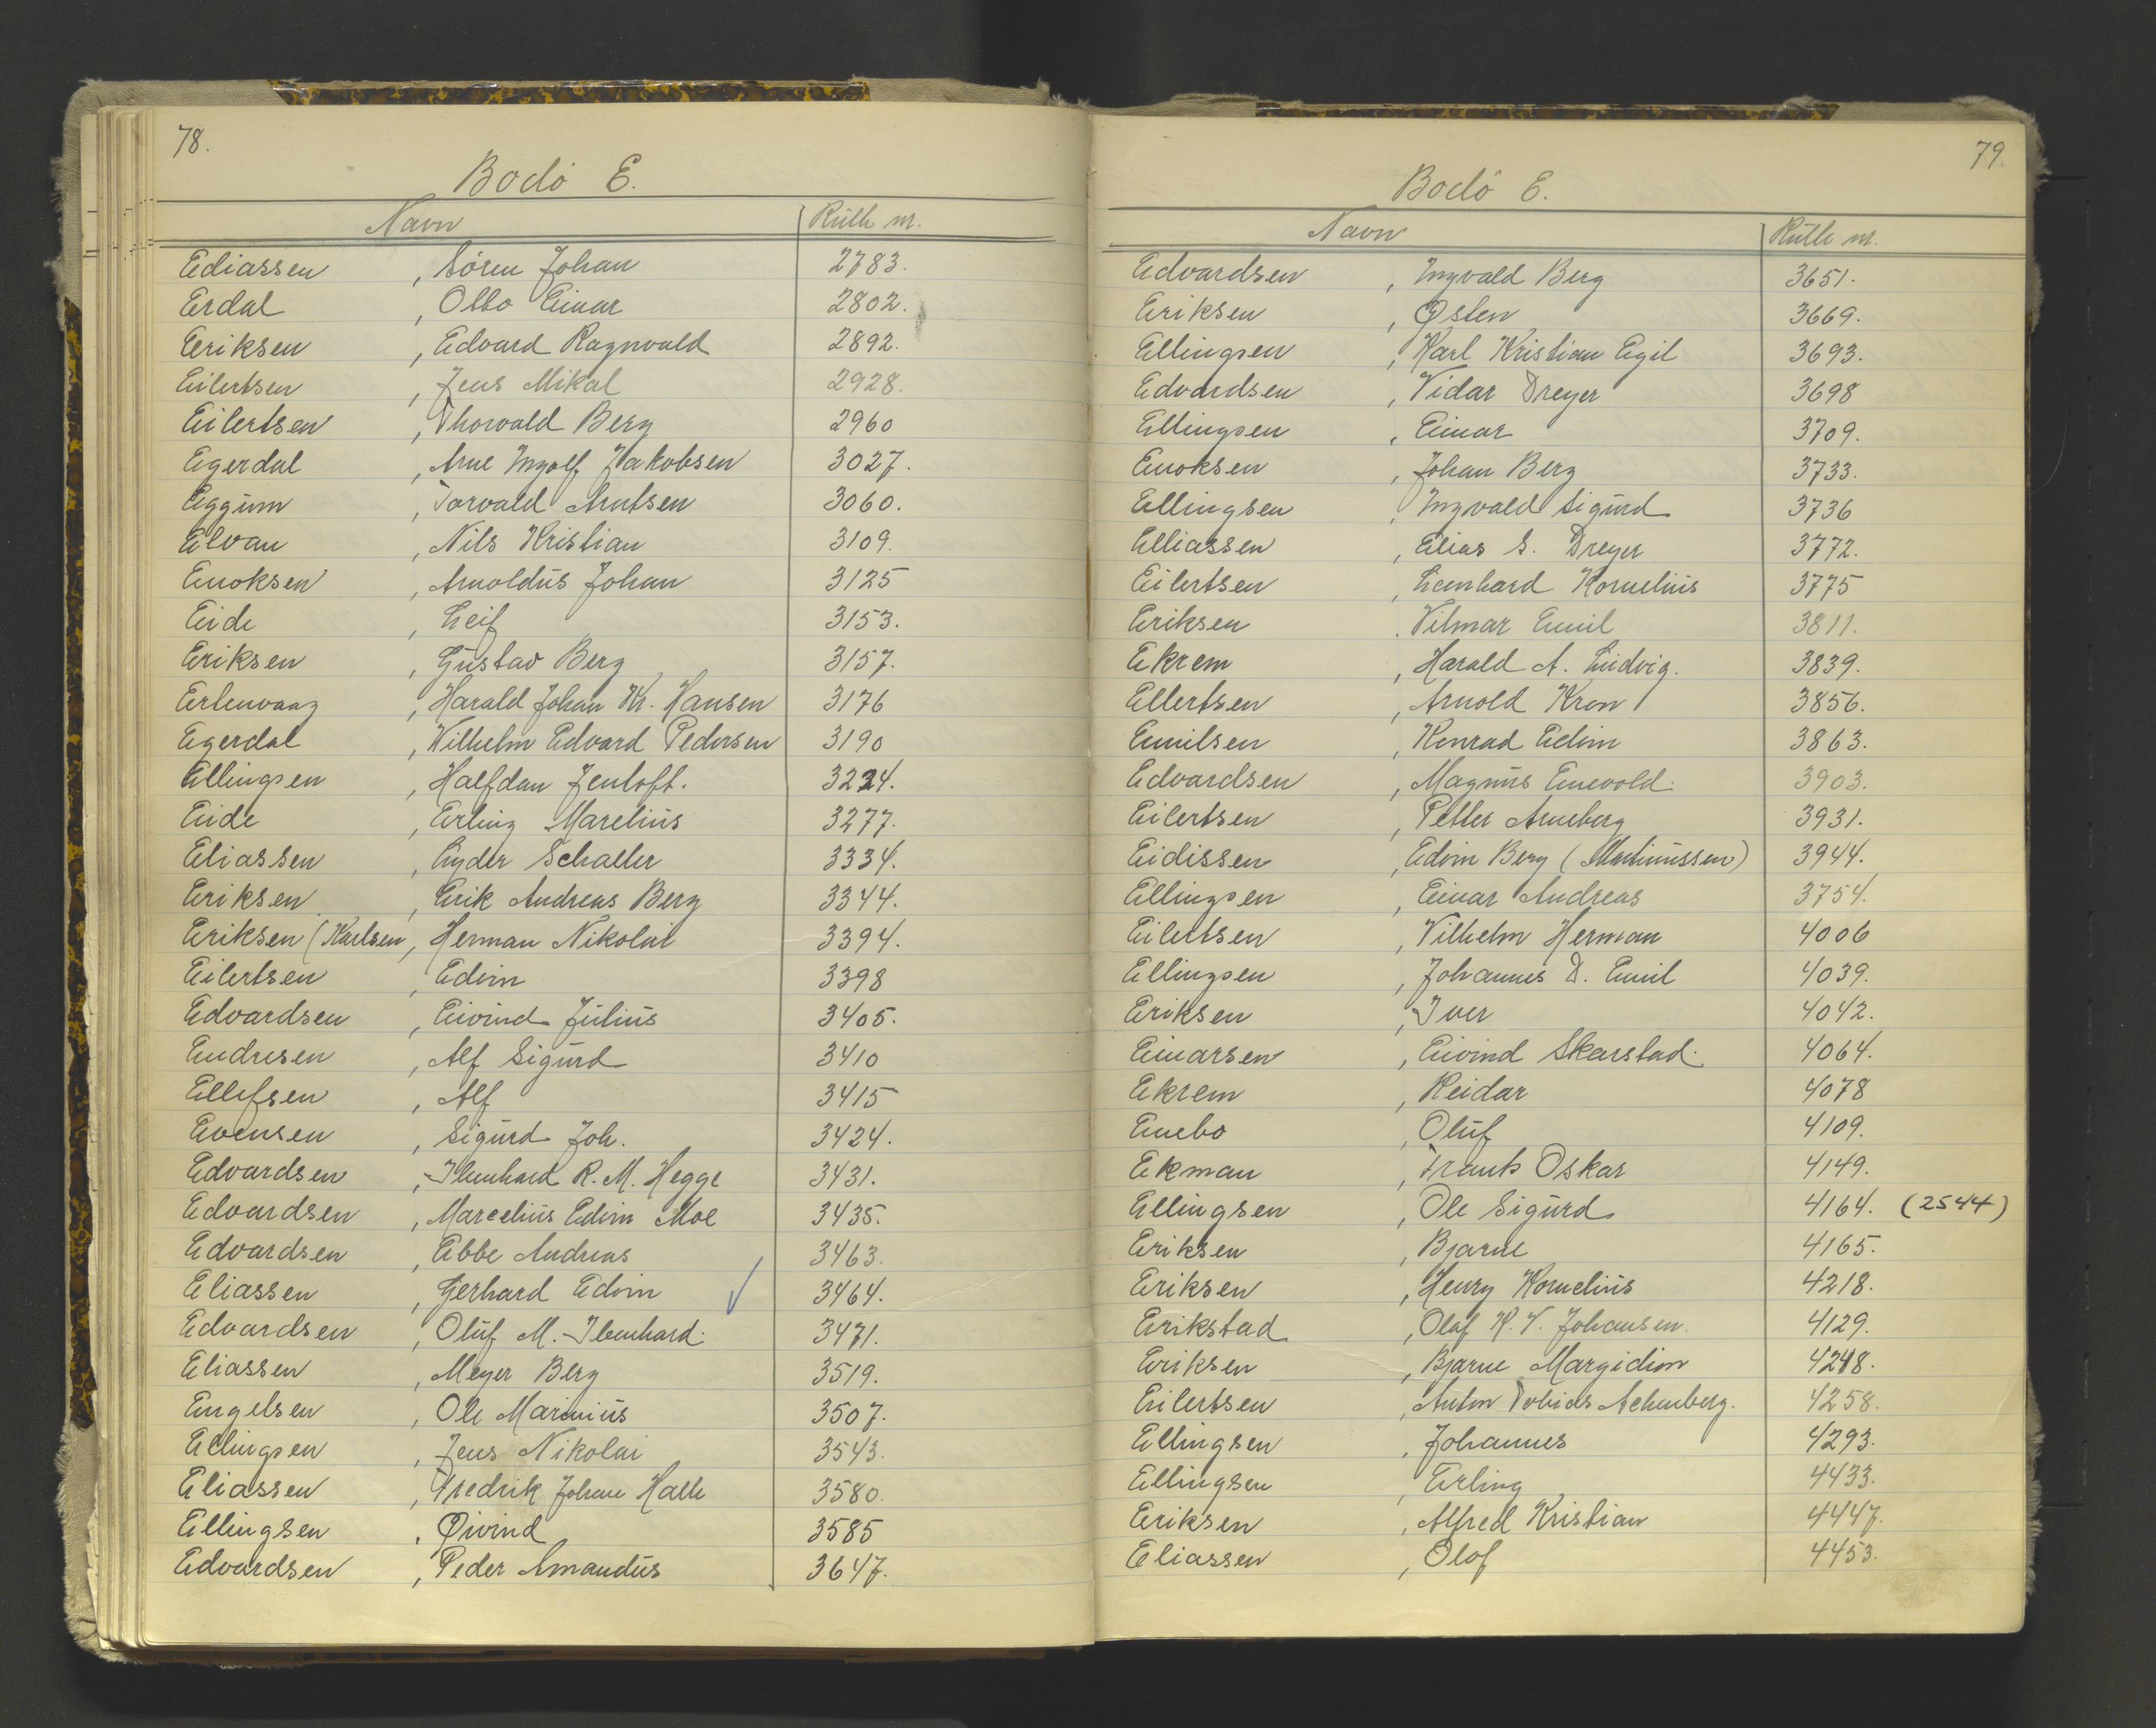 78.
Bodö E.
Navn Rulle nr.
Ediassen , Sören Johan 2783.
Erdal , Otto Einar 2802.
Eriksen , Edvard Ragnvald 2892.
Eilertsen , Jens Mikal 2928.
Eilertsen , Thorvald Berg 2960
Egerdal , Arne Ingolf Jakobsen 3027.
Eggum , Torvald Arntsen 3060.
Elvan , Nils Kristian 3109.
Enoksen , Arnoldus Johan 3125
Eide , Leif 3153.
Eriksen , Gustav Berg 3157.
Erlenvaag , Harald Johan Kr. Hansen 3176
Egerdal , Wilhelm Edvard Pedersen 3190
Ellingsen , Halfdan Jentoft. 3224.
Eide , Erling Marelius 3277.
Eliassen , Lyder Schaller 3334.
Eriksen , Erik Andreas Berg 3344.
Eriksen (Karlsen , Herman Nikolai 3394.
Eilertsen , Edvin 3398
Edvardsen , Eivind Julius 3405.
Endresen , Alf Sigurd 3410
Ellefsen , Alf 3415
Evensen , Sigurd Joh. 3424.
Edvardsen , Ibenhard R. M. Hegge 3431.
Edvardsen , Marcelius Edvin Moe 3435.
Edvardsen , Ebbe Andreas 3463.
Eliassen , Gerhard Edvin 3464.
Edvardsen , Oluf M. Ibenhard. 3471.
Eliassen , Meyer Berg 3519.
Engelsen , Ole Marinius 3507.
Ellingsen , Jens Nikolai 3543.
Eliassen , Fredrik Johan Halle 3580.
Ellingsen , Øivind 3585
Edvardsen , Peder Amandus 3647.
79.
Bodö E.
Navn Rulle nr.
Edvardsen , Ingvald Berg 3651.
Eriksen , Østen 3669.
Ellingsen , Karl Kristian Egil 3693.
Edvardsen , Vidar Dreyer 3698
Ellingsen , Einar 3709.
Enoksen , Johan Berg 3733.
Ellingsen , Ingvald Sigurd 3736
Elliassen , Elias S. Dreyer 3772.
Eilertsen , Leonhard Kornelius 3775
Eriksen , Vilmar Emil 3811.
Ekrem , Harald A. Ludvig. 3839.
Ellertsen , Arnold Kron 3856.
Emilsen , Konrad Edvin 3863.
Edvardsen , Magnus Enevold. 3903.
Eilertsen , Petter Arneberg 3931.
Eidissen , Edvin Berg (Martinussen) 3944.
Ellingsen , Einar Andreas 3754.
Eilertsen , Vilhelm Herman 4006
Ellingsen , Johannes D. Emil 4039.
Eriksen , Iver 4042.
Einarsen , Eivind Skarstad. 4064.
Ekrem , Reidar 4078
Enebo , Oluf 4109.
Ekman , Frants Oskar 4149.
Ellingsen , Ole Sigurd 4164. (2544)
Eriksen , Bjarne 4165.
Eriksen , Henry Kornelius 4218.
Erikstad , Olaf K. V. Johansen. 4129.
Eriksen , Bjarne Margidon 4248.
Eilertsen , Anton Tobias 4258.
Ellingsen , Johannes 4293.
Ellingsen , Erling 4433.
Eriksen , Alfred Kristian 4447.
Eliassen , Olof 4453.